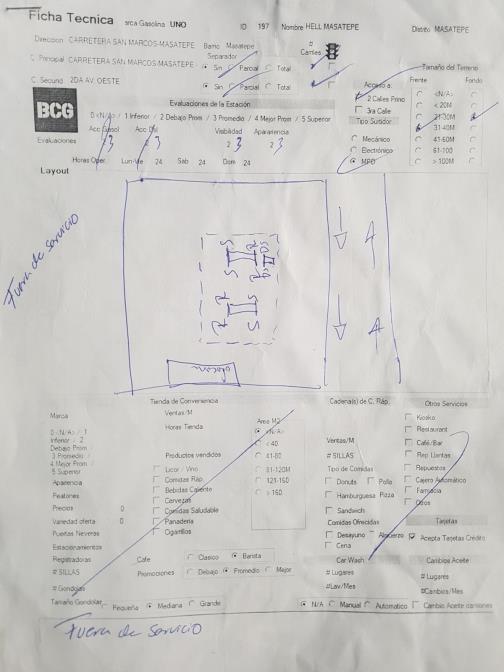 Ficha Tecnica arca Gasolina UNO ID 197 Nombre HELL MASATEPE Distrito MASATEPE
Direccion CARRETERA SAN MARCOS-MASATEPE Barrio Masatepe # Carriles
C. Principal CARRETERA SAN MARCOS-MASATEPE Separador Sin Parcial Total
C. Second. 2DA AV. OESTE Sin Parcial Total
Acceso a: 2 Calles Princ 3ra Calle
Tamaño del Terreno
Frente Fondo
<N/A>
< 20M
21-30M
31-40M
41-60M
61-100
> 100M
Tipo Surtidor
Mecánico
Electrónico
MPD
BCG
Evaluaciones de la Estación
0 <N/A> / 1 Inferior / 2 Debajo Prom / 3 Promedio / 4 Mejor Prom / 5 Superior
Evaluaciones Acc Gasol Acc Dsl Visibilidad Apariencia
3 3 2 3 2 3
Horas Oper. Lun-Vie 24 Sab 24 Dom 24
Layout
Fuera de servicio
S S
S S
DS
DS
Tienda de Conveniencia
Marca
0 <N/A> / 1 Inferior / 2 Debajo Prom / 3 Promedio / 4 Mejor Prom / 5 Superior
Apariencia
Peatones
Precios 0
Variedad oferta 0
Puertas Neveras
Estacionamientos
Registradoras
# SILLAS
# Gondolas
Tamaño Gondolas Pequeña Mediana Grande
Ventas/M
Horas Tienda
Productos vendidos
Licor / Vino
Comidas Ráp.
Bebidas Caliente
Cervezas
Comidas Saludable
Panaderia
Cigarrillos
Cafe Clasico Barista
Promociones Debajo Promedio Mejor
Area M2
<N/A>
< 40
41-80
81-120M
121-160
> 160
Cadena(s) de C. Ráp.
Ventas/M
# SILLAS
Tipo de Comidas
Donuts Pollo
Hamburguesa Pizza
Sandwich
Comidas Ofrecidas
Desayuno Almuerzo
Cena
Car Wash
# Lugares
#Lav/Mes
N/A Manual Automatico
Otros Servicios
Kiosko
Restaurant
Café/Bar
Rep Llantas
Repuestos
Cajero Automático
Farmacia
Otros
Tarjetas
Acepta Tarjetas Crédito
Cambios Aceite
#Lugares
#Cambios/Mes
Cambio Aceite camiones
Fuera de servicio